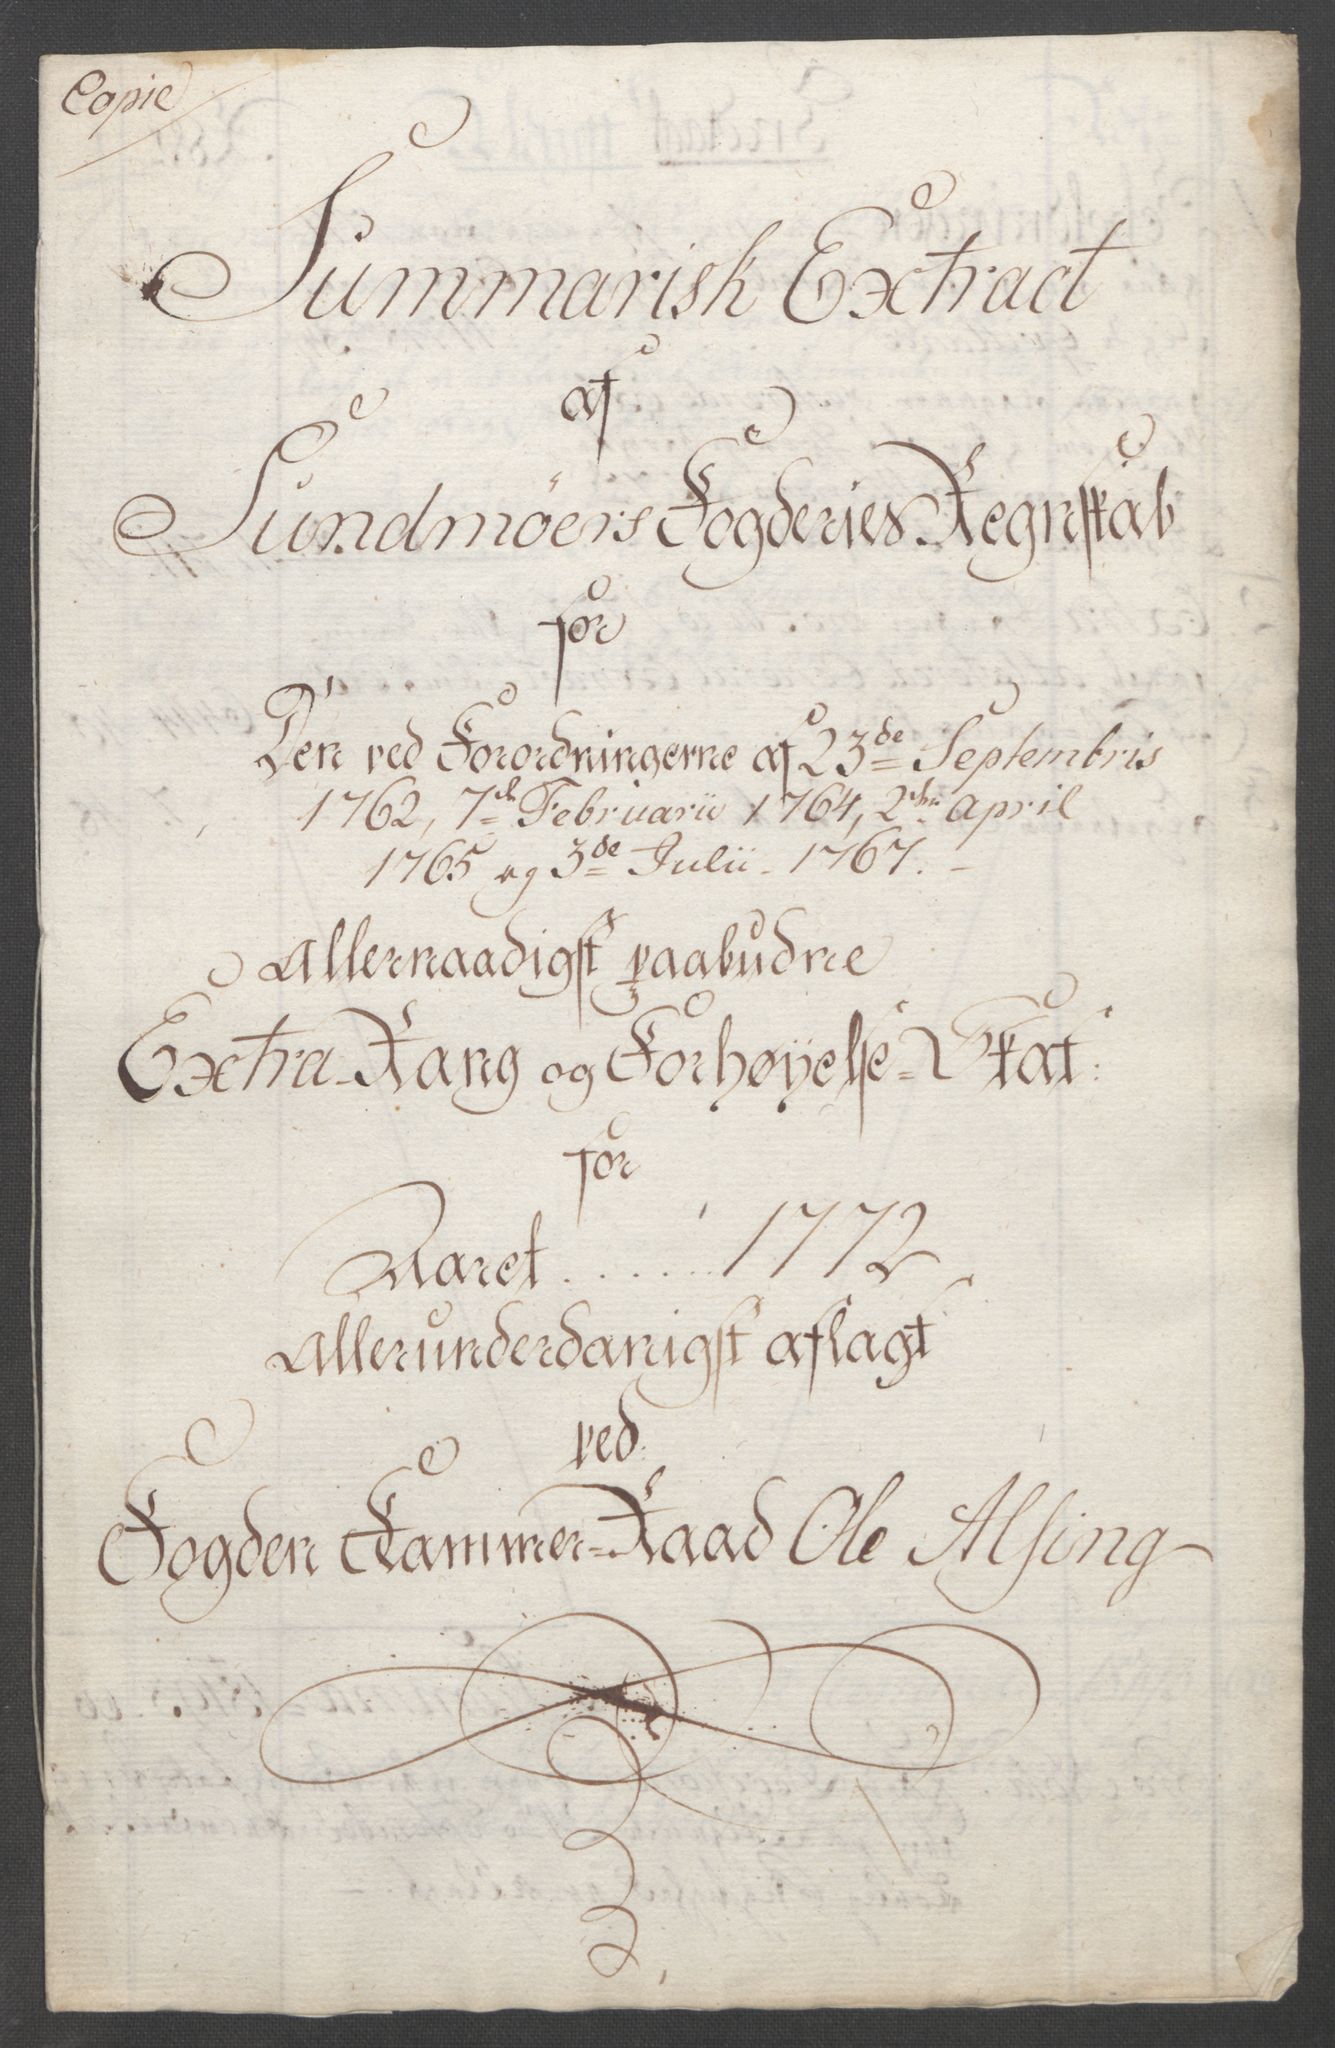 Copie
Summarisk Extract
af
Sundmöers Fogderies Regnskab
for
Den ved Forordningerne af 23de Septembris
1762, 7de Februarii 1764, 2den April
1765 og 3de Julii 1767.
Allernaadigst paabudne
Extra-Rang og Forhøyelse-Skat
for
Aaret ...... 1772
Allerunderdanigst aflagt
ved
Fogden Kammer-Raad Ole Alsing